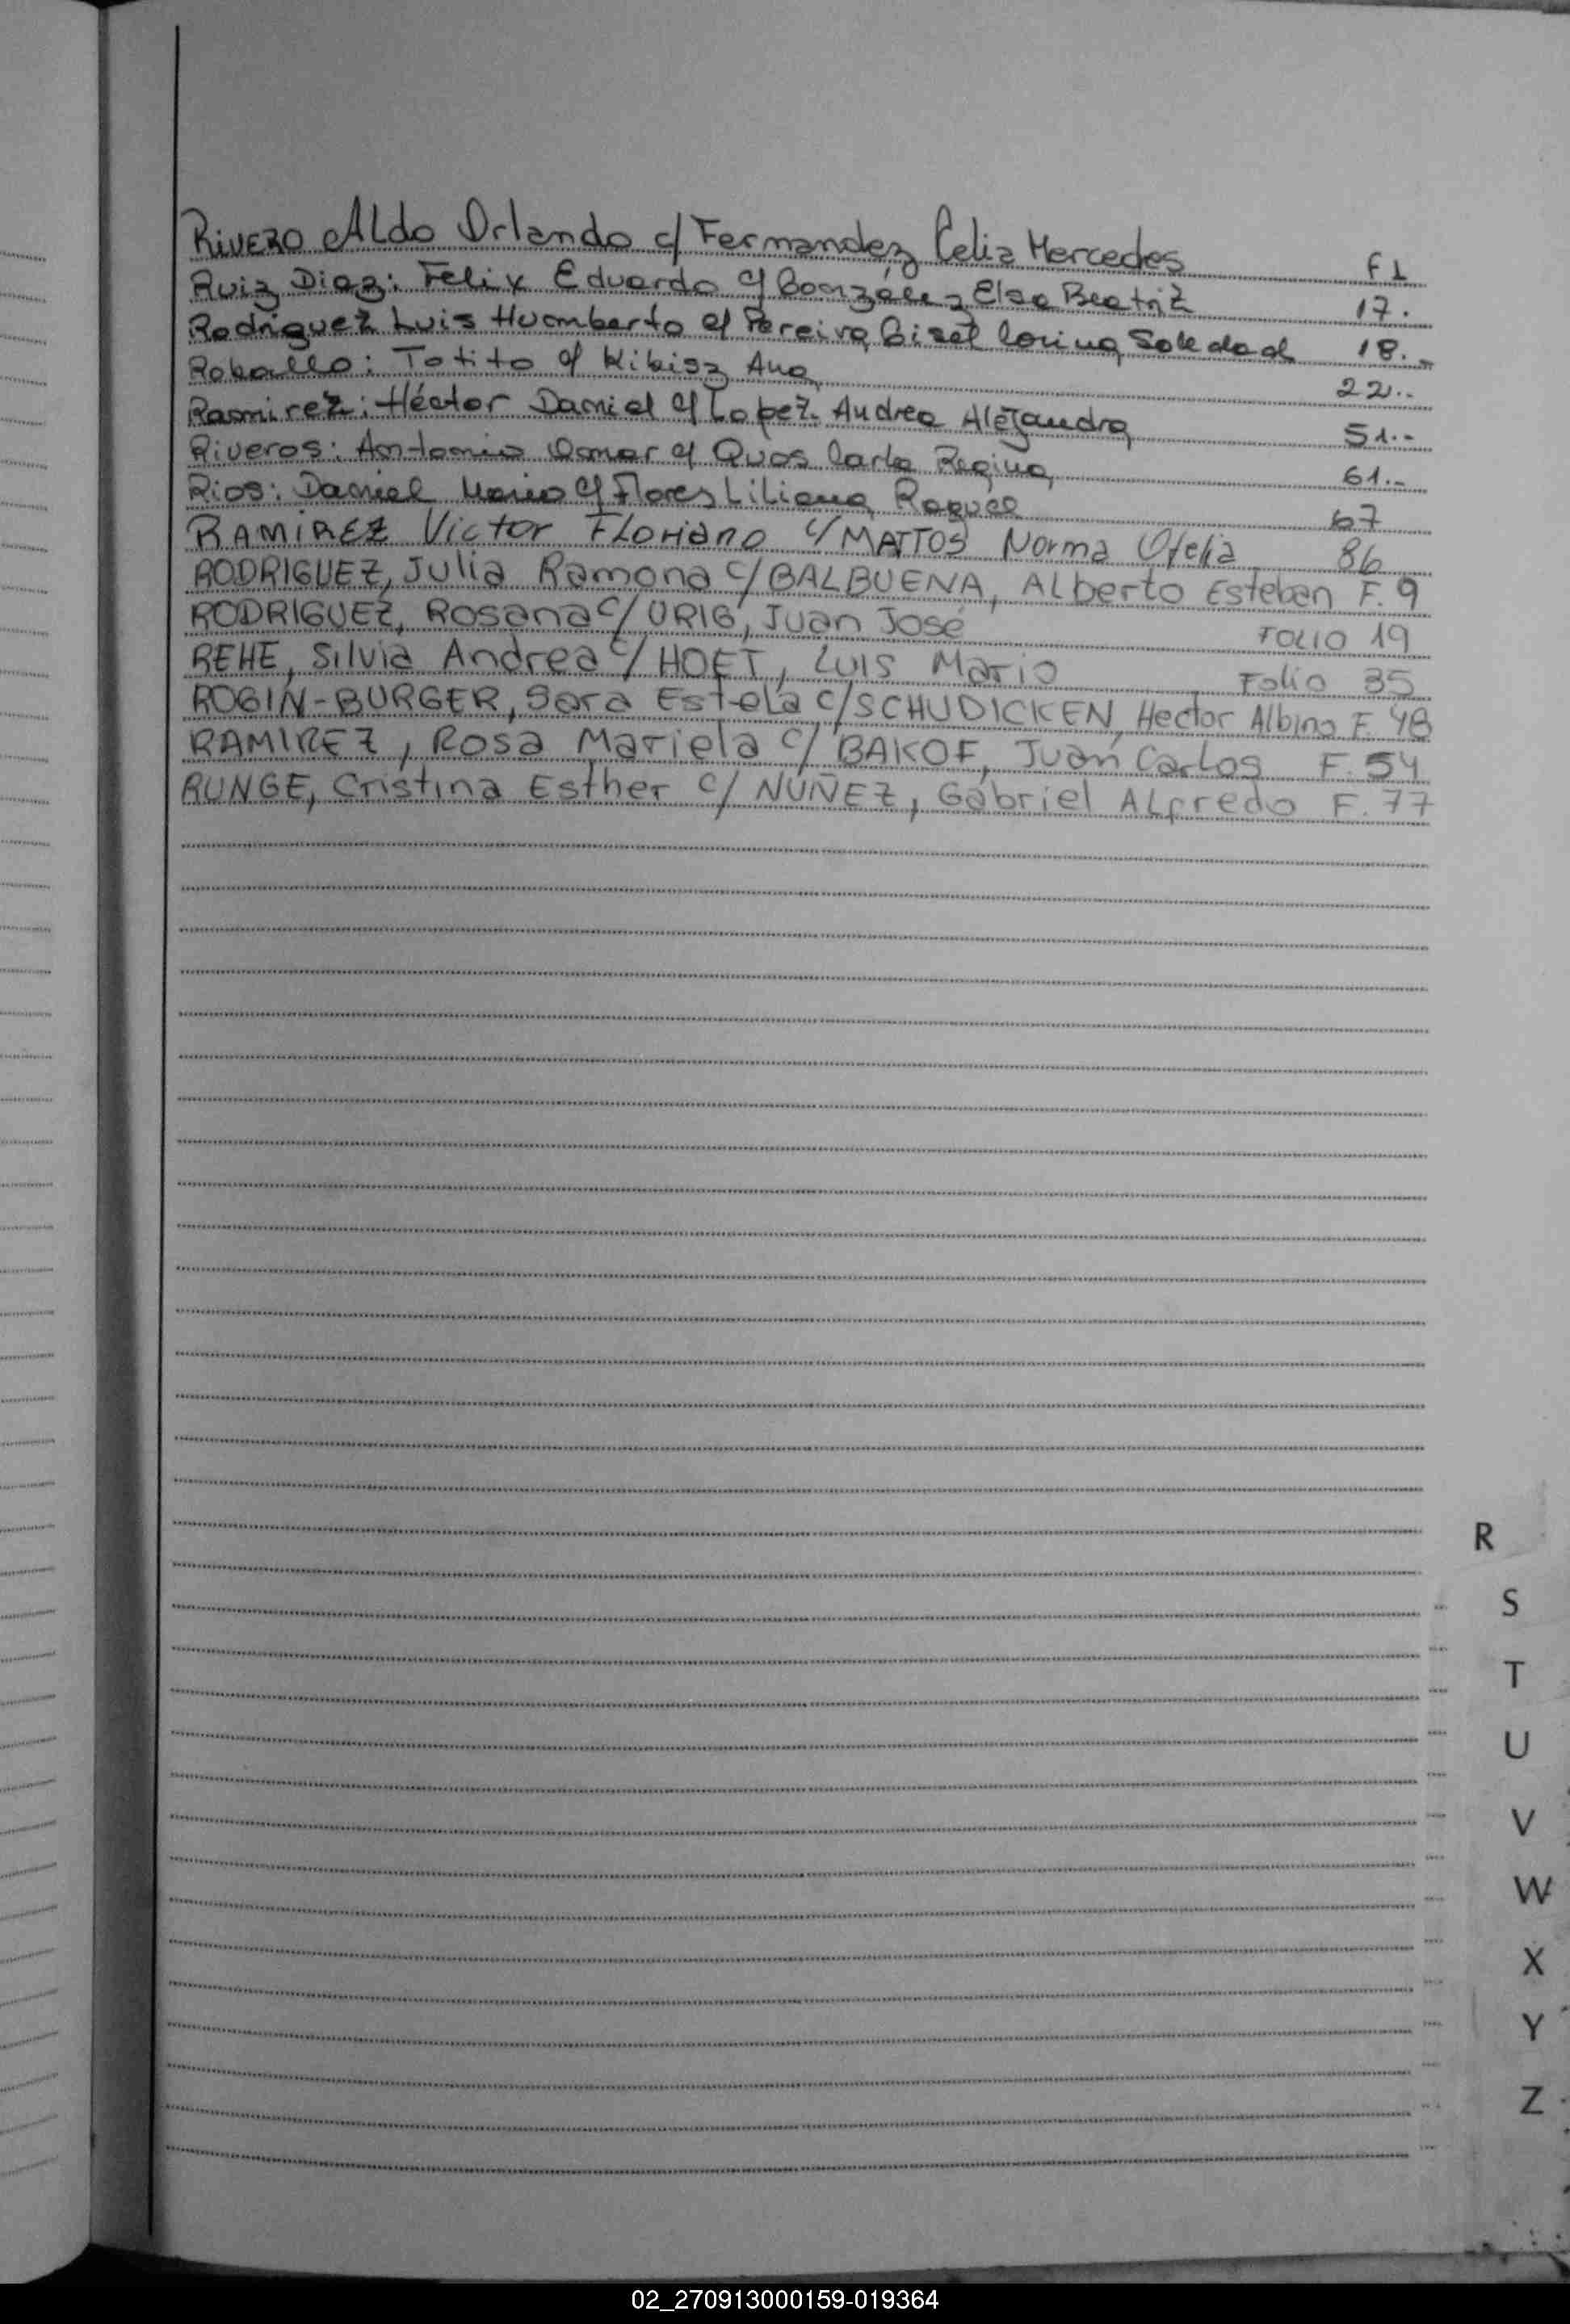 Rivero Aldo Orlando c/ Fernandez Celia Mercedes F 1
Ruiz Diaz: Felix Eduardo c/ Gonzalez Elsa Beatriz 17.
Rodriguez Luis Humberto c/ Pereira Gisel Corina Soledad 18.-
Roballo: Totito c/ Kibisz Ana 22.-
Ramirez: Héctor Daniel c/ Lopez Andrea Alejandra 51.-
Riveros: Antonio Omar c/ Quos Carla Regina 61.-
Rios: Daniel Mario c/ Flores Liliana Raquel 67
RAMIREZ Victor Floriano c/ MATTOS Norma Ofelia 86
RODRIGUEZ, Julia Ramona c/ BALBUENA, Alberto Esteban F. 9
RODRIGUEZ, Rosana c/ URIG, Juan José FOLIO 19
REHE, Silvia Andrea c/ HOFT, LUIS Mario Folio 35
ROGIN-BURGER, Sara Estela c/ SCHUDICKEN, Hector Albino F. 48
RAMIREZ, Rosa Mariela c/ BAKOF, Juan Carlos F. 54
RUNGE, Cristina Esther c/ NUÑEZ, Gabriel Alfredo F. 77
R
S
T
U
V
W
X
Y
Z
02_270913000159-019364